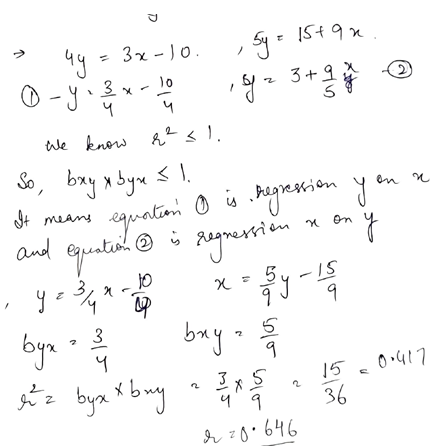 → 4y = 3x - 10. , 5y = 15 + 9x.
① - y = 3/4 x - 10/4 , y = 3 + 9/5 x - ②
We know r² ≤ 1.
So, bxy × byx ≤ 1.
It means equation ① is regression y on x
and equation ② is regression x on y
, y = 3/4 x - 10/4 x = 5/9 y - 15/9
byx = 3/4 bxy = 5/9
r² = byx × bxy = 3/4 × 5/9 = 15/36 = 0.417
r = 0.646